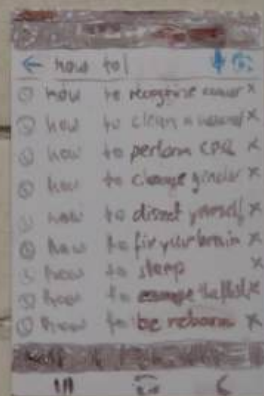 how to
how to recognize
how to clean a wound
how to perform CPR
how to change gender
how to distract yourself
how to fix your brain
how to sleep
how to escape
how to be reborn